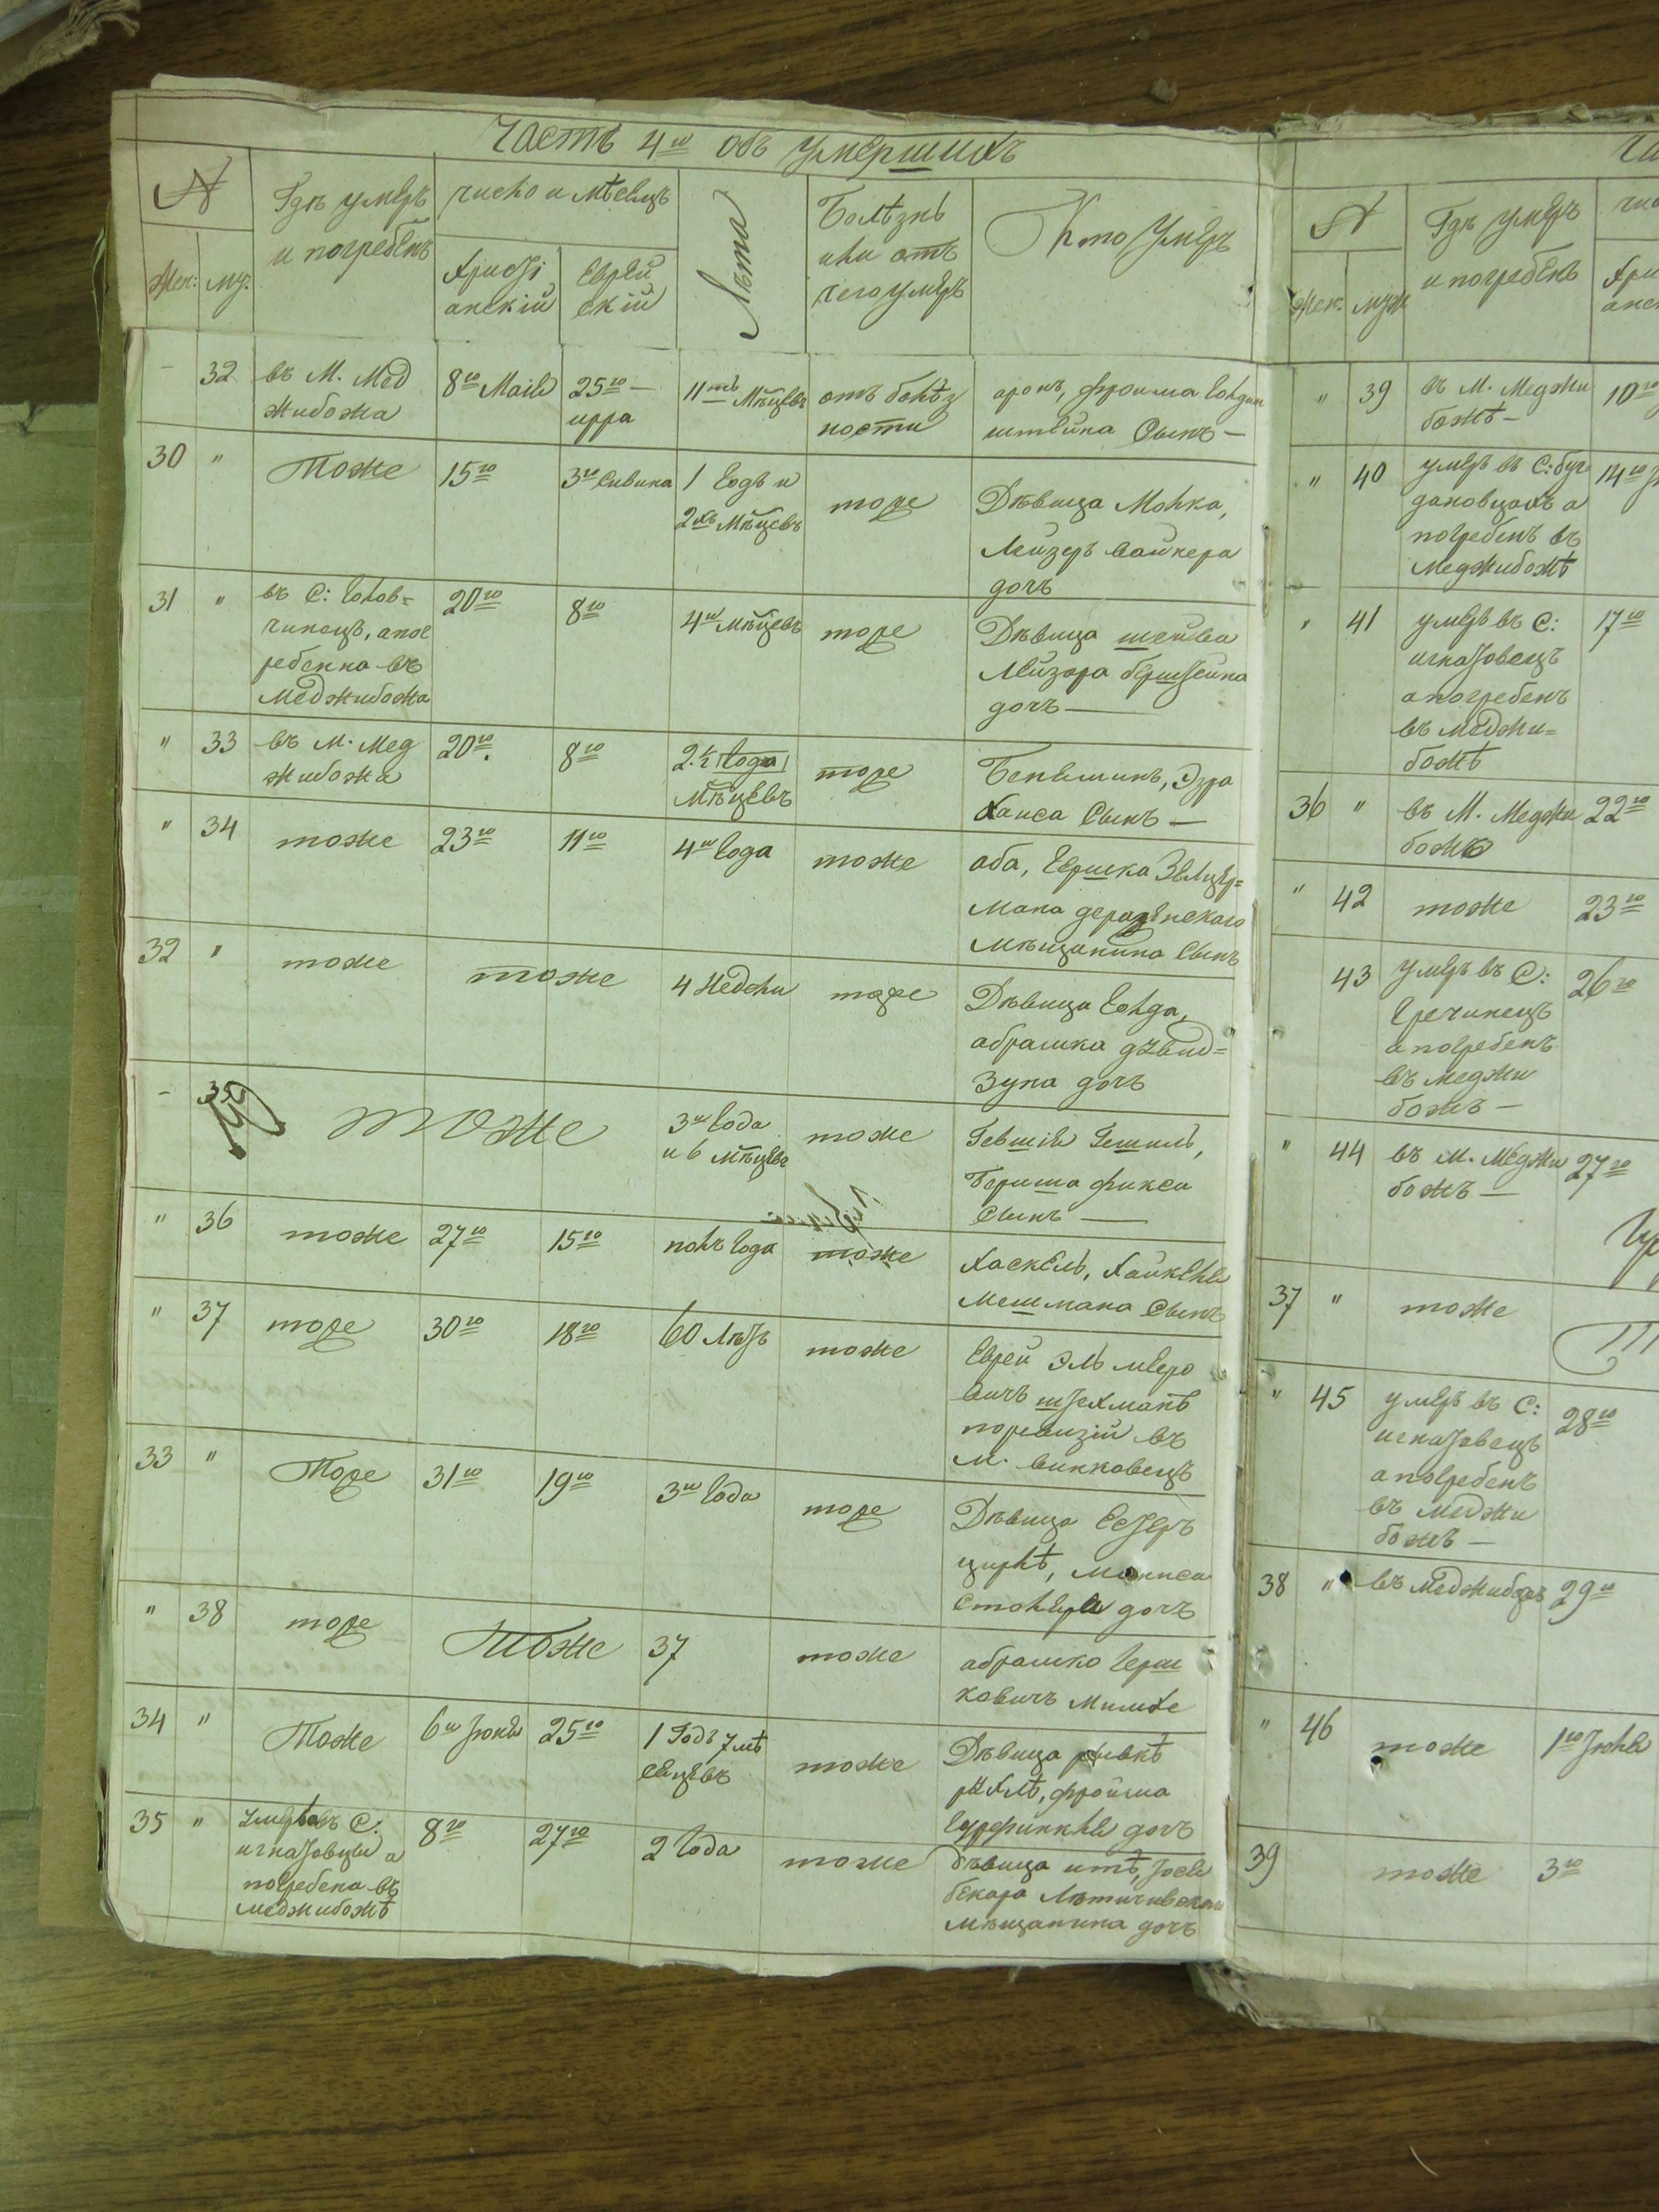 Часть 4ю объ умершихъ
№
Жен: му:
Гдѣ умеръ
и погребенъ
число и мѣсяцъ
Христі
анскій
Еврей
скій
Лѣта
Болѣзнь
или отъ
чего умеръ
Кто умеръ
— 32 въ М. Мед
жибожа
8го Маія
25го —
ирра
11ть Мѣцевъ
отъ болѣз
ности
аронъ, фроима Голдин
штейна Сынъ —
30 " Тоже 15го 3го Сивана
1 Годъ и
2хъ Мѣцевъ
тоже
Дѣвица Молка,
Лейзеръ Вайнера
дочъ
31 " въ С:Голов=
чинецъ, апог
ребенна въ
Меджибожа
20го 8го 4ш Мѣцевъ тоже
Дѣвица шейва
Лейзора берштейна
дочъ —
" 33 въ М. Мед
жибожа
20го 8го
2.½ Года
Мѣцевъ
тоже
Беньяминъ, Эзра
Хаиса Сынъ —
" 34 тоже 23го 11го 4ш Года тоже
аба, Гершка Зельцер=
мана дераженскаго
Мѣщанина Сынъ
32 " тоже тоже 4 Недѣли тоже
Дѣвица Голда,
абрамка
Зуна дочъ
— 35 тоже
3ш Года
и 6 мѣцевъ
тоже
Гевшія Гешиль,
Бериша фикса
Сынъ —
" 36 тоже 27го 15го полъ Года тоже
Хаскель, Хайкеля
Мешмана Сынъ
" 37 тоже 30го 18го 60 Лѣтъ тоже
Еврей Эль меро
вичъ штехманъ
поревизій въ
М. Винковецъ
33 " Тоже 31го 19го 3ш Года тоже
Дѣвица Естеръ
цирлѣ, Мониса
Столяра дочъ
" 38 тоже Тоже 37 тоже
абрамко Герш
ковичъ Милихе
34 " Тоже 6ш Іюня 25го
1 Годъ 7 мѣ
сяцевъ
тоже
Дѣвица ривкѣ
рахлѣ, фройма
Гурфинкля дочъ
35 " умерла въ С:
игнатовцы а
погребена въ
меджибожѣ
8го 27го 2 Года тоже
дѣвица итѣ, Іося
бекара Лѣтичивскаго
мѣщанина дочъ
№
Жен: муж
Гдѣ умеръ
и погребенъ
" 39 въ М. Меджи
божѣ —
10го
" 40 умеръ въ С: буг
дановцахъ а
погребенъ въ
Меджибожѣ
14го
" 41 умеръ въ С:
игнатовецъ
а погребенъ
въ меджи=
божѣ
17го
36 " въ М. Меджи
божѣ
22го
" 42 тоже 23го
43 умеръ въ С:
Гречинецъ
а погребенъ
въ меджи
божъ —
26го
" 44 въ М. Меджи
божъ —
27го
37 " тоже
" 45 умеръ въ С:
игнатовецъ
а погребенъ
въ меджи
божъ —
28го
38 " въ Меджибожъ 29го
" 46 тоже 1го Іюля
39 тоже 3го